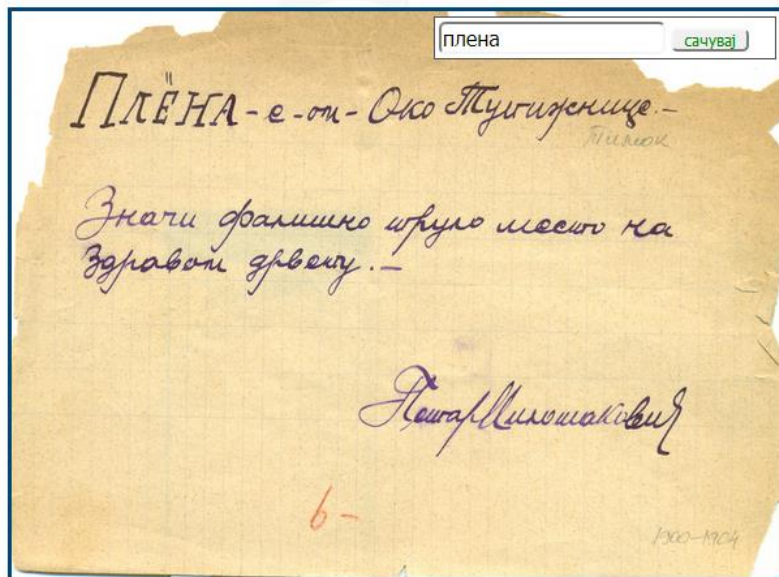 плена
сачувај
ПЛЁНА - е - т - Око Тупижнице. -
Тимок
Значи фалишно труло место на
здравом дрвету. -
Петар Милошаковић
6 -
1900-1904